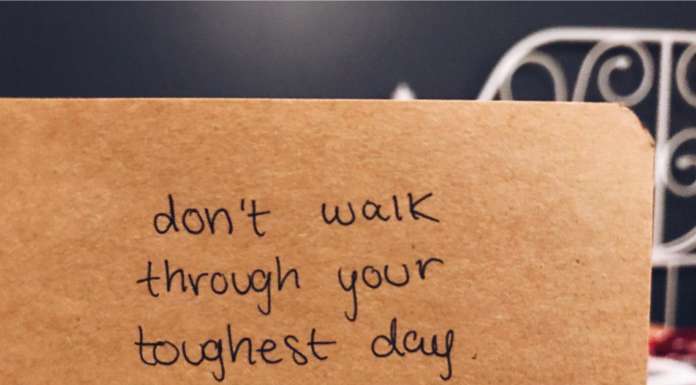 don't walk
through your
toughest day.